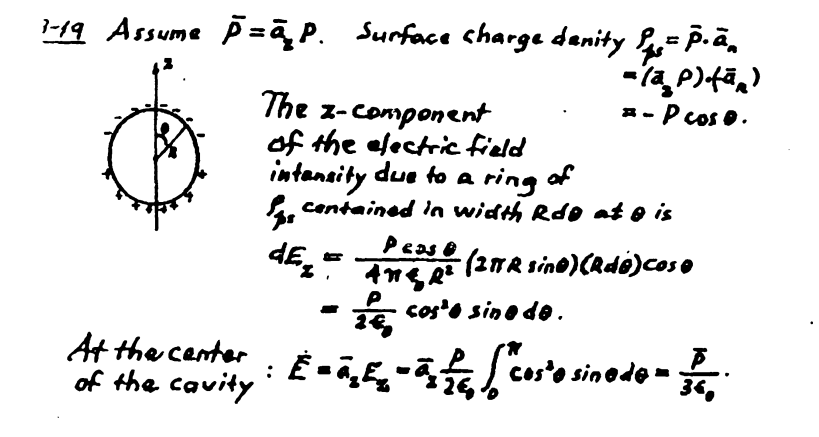 3-19 Assume P̄ = ā_z P. Surface charge density ρ_ps = P̄·ā_n
= (ā_z P)·(-ā_R)
= - P cos θ.
z
- - - - - -
θ
R
+ + + + + +
The z-component
of the electric field
intensity due to a ring of
ρ_ps contained in width Rdθ at θ is
dE_z = P cos θ / 4πϵ₀R² (2πR sinθ)(Rdθ) cos θ
= P / 2ϵ₀ cos²θ sinθ dθ.
At the center
of the cavity : Ē = ā_z E_z = ā_z P / 2ϵ₀ ∫₀^π cos²θ sinθ dθ = P̄ / 3ϵ₀.